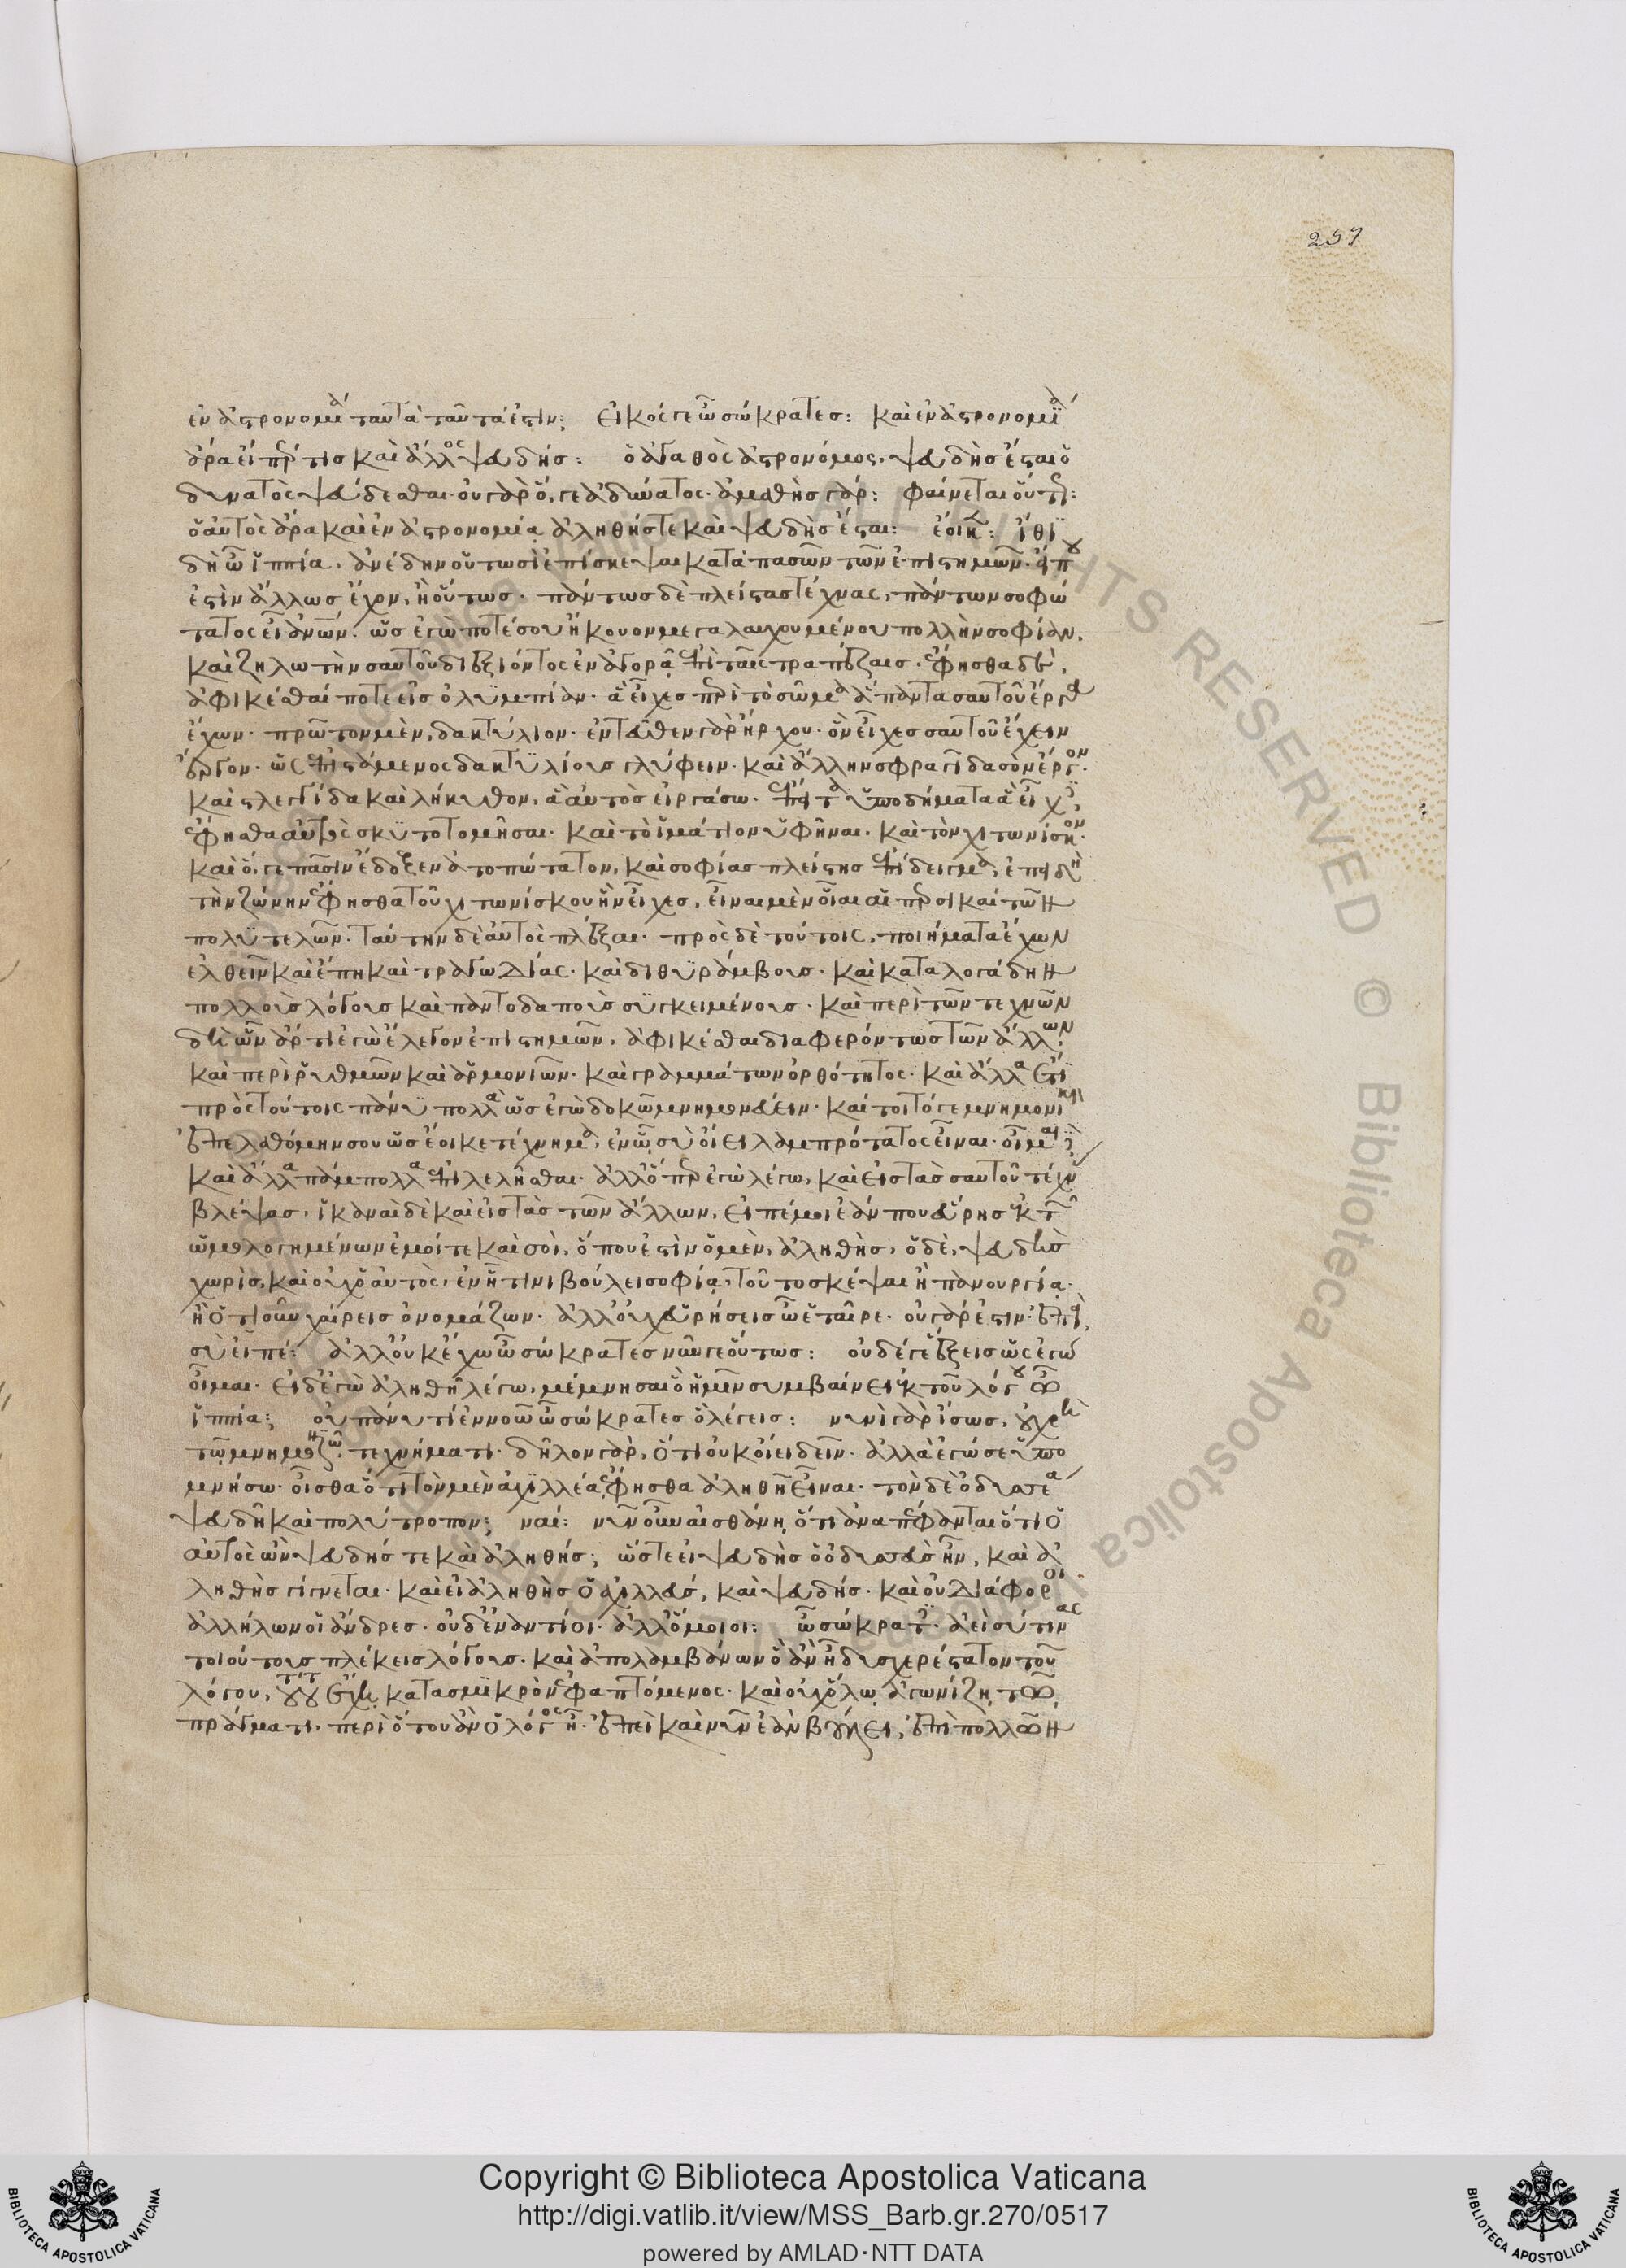 257
ἐν ἀστρονομία ταυτὰ ταῦτά ἐστιν; εἰκός γε ὦ σώκρατες: καὶ ἐν ἀστρονομία
ἄρα εἴπερ τις καὶ ἄλλος ψευδής: ὁ ἀγαθὸς ἀστρονόμος, ψευδὴς ἔσται ὁ
δυνατὸς ψεύδεσθαι· οὐ γὰρ ὅ, γε ἀδύνατος· ἀμαθὴς γάρ: φαίνεται οὕτως:
ὁ αὐτὸς ἄρα καὶ ἐν ἀστρονομία ἀληθής τε καὶ ψευδὴς ἔσται: ἔοικεν: ἴθι
δὴ ὦ ἱππία, ἀνέδην οὑτωσὶ ἐπίσκεψαι κατὰ πασῶν τῶν ἐπιστημῶν· εἴ που
ἐστὶν ἄλλως ἔχον, ἢ οὕτως· πάντως δὲ πλείστας τέχνας, πάντων σοφώ
τατος εἶ ἀνθρώπων· ὡς ἐγώ ποτέ σου ἤκουον μεγαλαυχουμένου πολλὴν σοφίαν,
καὶ ζηλωτὴν σαυτοῦ διεξιόντος ἐν ἀγορᾷ ἐπὶ ταῖς τραπέζαις· ἔφησθα δὲ,
ἀφικέσθαι ποτὲ εἰς ὀλυμπίαν· ἃ εἶχες περὶ τὸ σῶμα ἅπαντα σαυτοῦ ἔργα
ἔχων· πρῶτον μὲν, δακτύλιον· ἐντεῦθεν γὰρ ἤρχου· ὃν εἶχες σαυτοῦ ἔχειν
ἔργον· ὡς ἐπιστάμενος δακτυλίους γλύφειν· καὶ ἄλλην σφραγῖδα σὸν ἔργον·
καὶ στλεγγίδα καὶ λήκυθον, ἃ αὐτὸς εἰργάσω· ἔπειτα ὑποδήματα ἃ εἶχες
ἔφησθα αὐτὸς σκυτοτομῆσαι· καὶ τὸ ἱμάτιον ὑφῆναι· καὶ τὸν χιτωνίσκον·
καὶ ὅ, γε πᾶσιν ἔδοξεν ἀτοπώτατον, καὶ σοφίας πλείστης ἐπίδειγμα, ἐπειδὴ
τὴν ζώνην ἔφησθα τοῦ χιτωνίσκου ἣν εἶχες, εἶναι μὲν οἷαι αἱ περσικαὶ τῶν
πολυτελῶν· ταύτην δὲ αὐτὸς πλέξαι· πρὸς δὲ τούτοις, ποιήματα ἔχων
ἐλθεῖν καὶ ἔπη καὶ τραγωδίας· καὶ διθυράμβους· καὶ καταλογάδην
πολλοὺς λόγους καὶ παντοδαποὺς συγκειμένους· καὶ περὶ τῶν τεχνῶν
δὴ ὧν ἄρτι ἐγὼ ἔλεγον ἐπιστημῶν, ἀφικέσθαι διαφερόντως τῶν ἄλλων
καὶ περὶ ῥυθμῶν καὶ ἁρμονιῶν· καὶ γραμμάτων ὀρθότητος· καὶ ἄλλα ἔτι
πρὸς τούτοις πάνυ πολλὰ ὡς ἐγὼ δοκῶ μνημονεύειν· καίτοι τό γε μνημονικὸν
ἐπελαθόμην σου ὡς ἔοικε τέχνημα, ἐν ᾧ σὺ οἴει λαμπρότατος εἶναι· οἶμαι δὲ
καὶ ἄλλα πάμπολλα ἐπιλελῆσθαι· ἀλλ' ὅπερ ἐγὼ λέγω, καὶ εἰς τὰς σαυτοῦ τέχνας
βλέψας, ἱκαναὶ δὲ καὶ εἰς τὰς τῶν ἄλλων, εἰπέ μοι ἐάν που εὕρης ἐκ τῶν
ὡμολογημένων ἐμοί τε καὶ σοὶ, ὅπου ἐστὶν ὁ μὲν, ἀληθὴς, ὁ δὲ, ψευδὴς
χωρὶς, καὶ οὐχ ὁ αὐτὸς, ἐν ᾗ τινι βούλει σοφίᾳ, τοῦτο σκέψαι ἢ πανουργίᾳ·
ἢ ὁτιοῦν χαίρεις ὀνομάζων· ἀλλ' οὐχ εὑρήσεις ὦ ἑταῖρε· οὐ γὰρ ἔστιν· ἐπεὶ,
σὺ εἰπέ: ἀλλ' οὐκ ἔχω ὦ σώκρατες νῦν γε οὕτως: οὐδέ γε ἕξεις ὡς ἐγὼ
οἶμαι· εἰ δ' ἐγὼ ἀληθῆ λέγω, μέμνησαι ὃ ἡμῖν συμβαίνει ἐκ τοῦ λόγου ὦ
ἱππία; οὐ πάνυ τι ἐννοῶ ὦ σώκρατες ὃ λέγεις: νυνὶ γὰρ ἴσως, οὐ χρῆ
τῷ μνημονικῷ τεχνήματι· δῆλον γὰρ, ὅτι οὐκ οἴει δεῖν· ἀλλὰ ἐγώ σε ὑπο
μνήσω· οἶσθα ὅτι τὸν μὲν ἀχιλλέα, ἔφησθα ἀληθῆ εἶναι· τὸν δὲ ὀδυσσέα
ψευδῆ καὶ πολύτροπον; ναί: νῦν οὖν αἰσθάνη, ὅτι ἀναπέφανται ὅτι ὁ
αὐτὸς ὢν ψευδής τε καὶ ἀληθής; ὥστε εἰ ψευδὴς ὁ ὀδυσσεὺς ἦν, καὶ ἀ
ληθὴς γίγνεται· καὶ εἰ ἀληθὴς ὁ ἀχιλλεύς, καὶ ψευδής· καὶ οὐ διάφοροι
ἀλλήλων οἱ ἄνδρες· οὐδ' ἐναντίοι· ἀλλ' ὅμοιοι: ὦ σώκρατες· ἀεὶ σύ τινας
τοιούτους πλέκεις λόγους· καὶ ἀπολαμβάνων ὃ ἂν ᾖ δυσχερέστατον τοῦ
λόγου, τούτου ἔχῃ, κατὰ σμικρὸν ἐφαπτόμενος· καὶ οὐχ ὅλῳ ἀγωνίζῃ τῷ
πράγματι, περὶ ὅτου ἂν ὁ λόγος ᾖ· ἐπεὶ καὶ νῦν ἐὰν βούλει, ἐπὶ πολλῶν
Copyright © Biblioteca Apostolica Vaticana
http://digi.vatlib.it/view/MSS_Barb.gr.270/0517
powered by AMLAD·NTT DATA